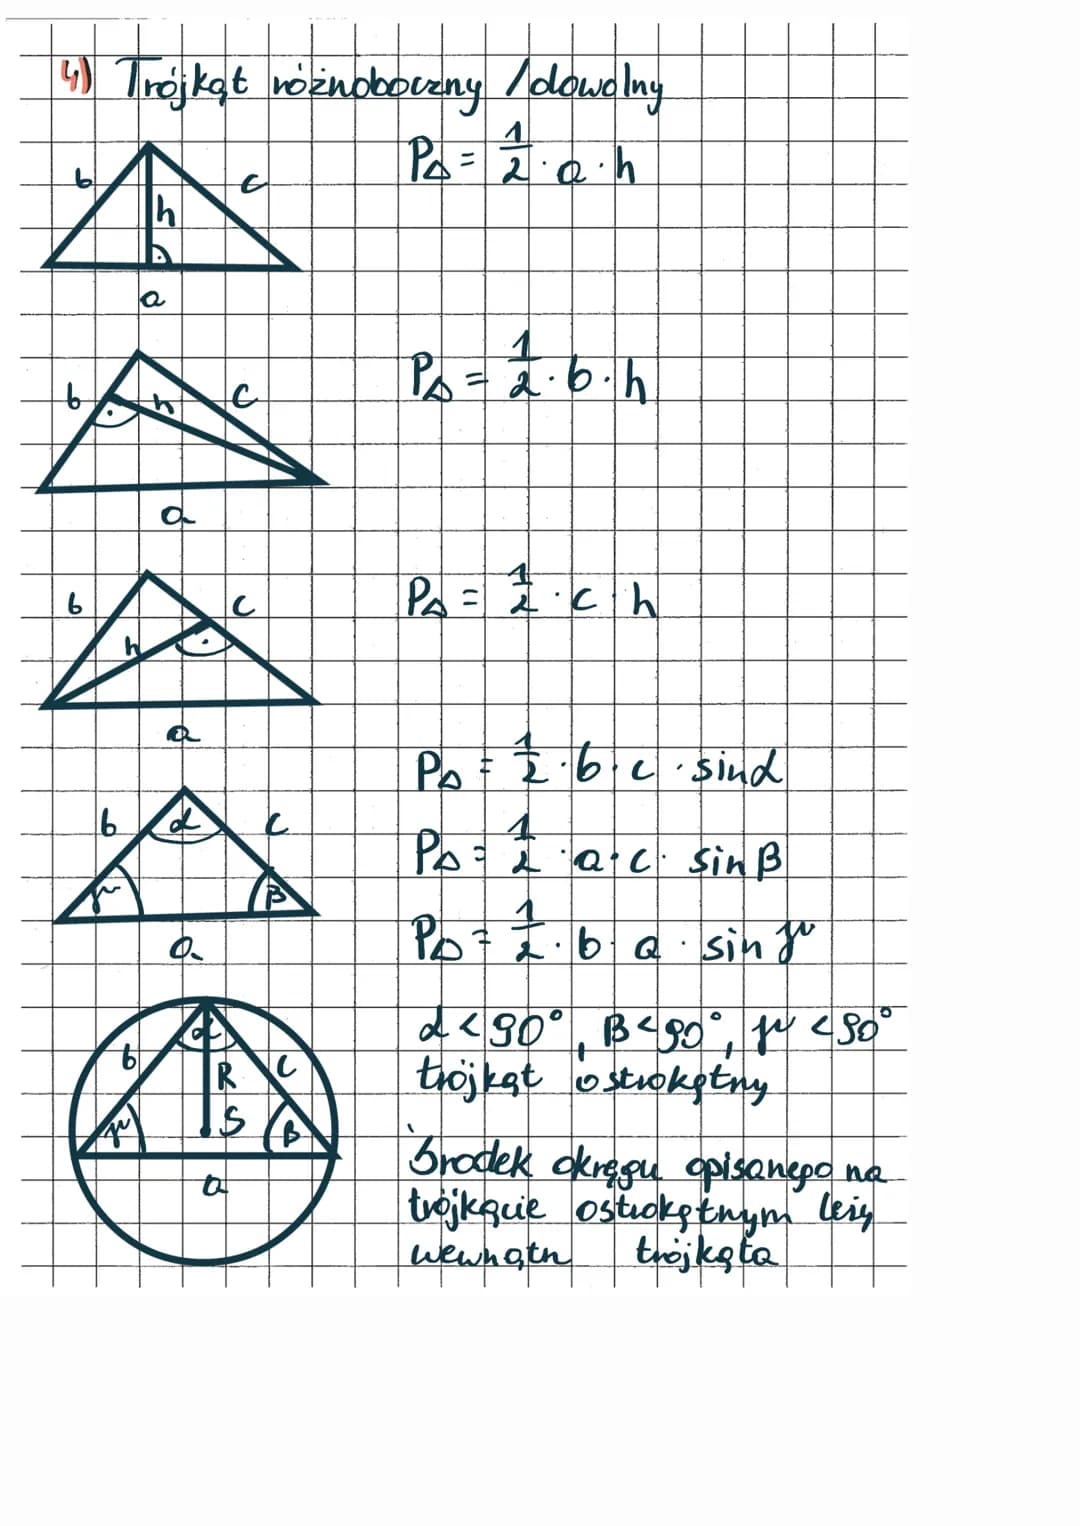 4) Trójkąt różnoboczny / dowolny
b
c
h
a
P△ = 1/2 · a · h
b
h
c
a
P△ = 1/2 · b · h
b
c
h
a
P△ = 1/2 · c · h
b
α
c
γ
β
a
P△ = 1/2 · b · c · sinα
P△ = 1/2 · a · c · sin β
P△ = 1/2 · b · a · sin γ
α
b
R
c
γ
S
β
a
α < 90°, β < 90°, γ < 90°
trójkąt ostrokątny
Środek okręgu opisanego na
trójkącie ostrokątnym leży
wewnątrz trójkąta